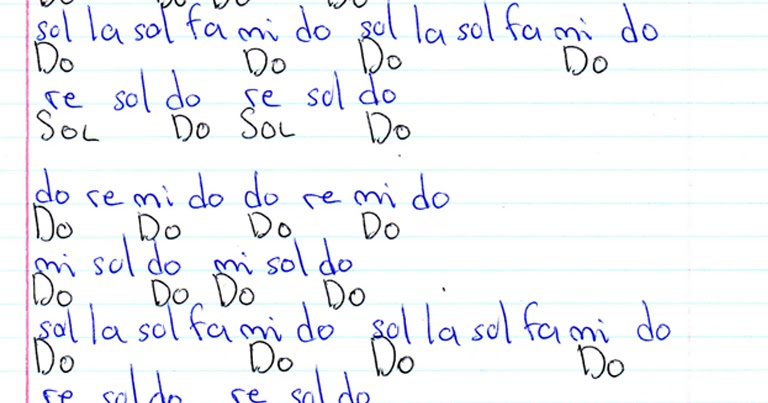 sol la sol fa mi do sol la sol fa mi do
Do Do Do Do
re sol do re sol do
SOL DO SOL Do
do re mi do do re mi do
Do Do Do Do
mi sol do mi sol do
Do Do Do Do
sol la sol fa mi do sol la sol fa mi do
Do Do Do Do
re sol do re sol do